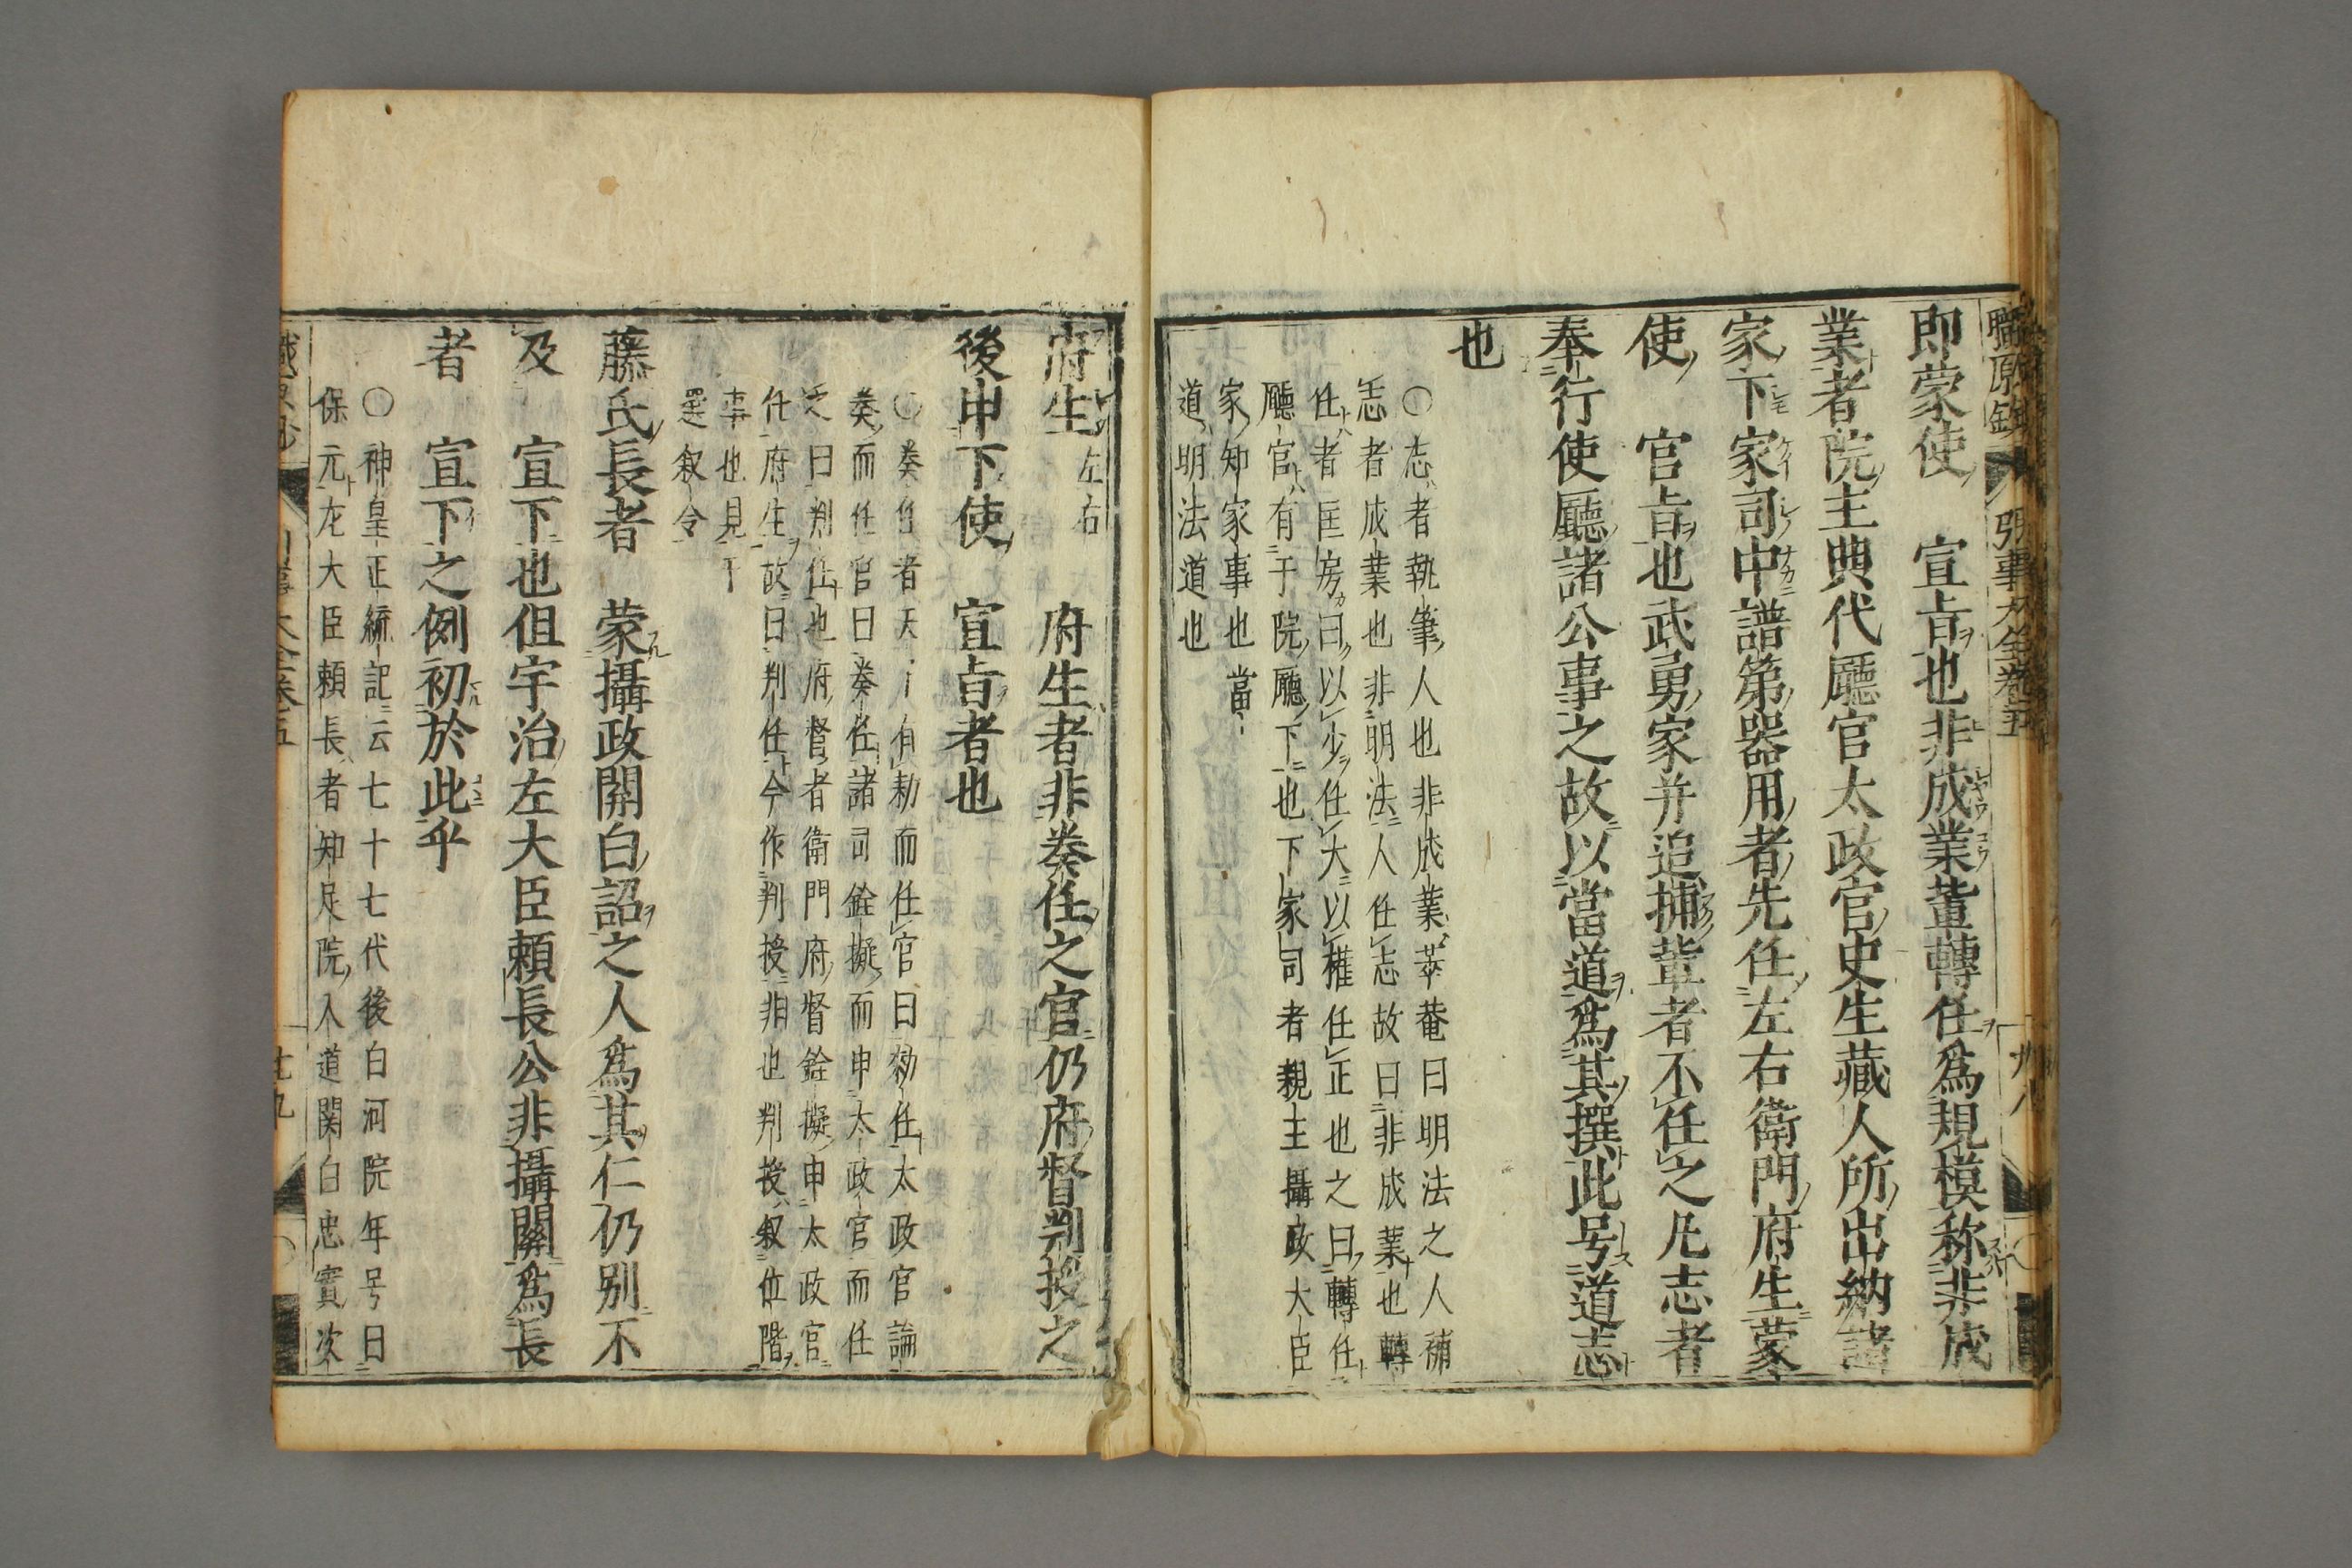 即蒙使　宣旨也非成業輩轉任爲規模称非成
業者院主典代廳官太政官史生藏人所出納諸
家下家司中譜第器用者先任左右衛門府生蒙
使　官旨也武勇家并追捕輩者不任之凡志者
奉行使廳諸公事之故以當道爲其撰此号道志
也
〇志者執筆人也非成業萃菴曰明法之人補
志者成業也非明法人任志故曰非成業也轉
任者匡房曰以少任大以權任正也之曰轉任
廳官有于院廳下也下家司者親王攝政大臣
家知家事也當
道明法道也
府生左右　府生者非奏任之官仍府督判授之
後申下使　宣旨者也
〇奏任者天有勅而任官曰勅任太政官論
奏而任官曰奏任諸司銓擬而申太政官而任
之曰判任也府督者衛門府督銓擬申太政官
任府生故曰判任今作判授非也判授叙位階
事也見于
選叙令
藤氏長者　蒙攝政關白詔之人爲其仁仍别不
及　宣下也但宇治左大臣頼長公非攝關爲長
者　宣下之例初於此乎
〇神皇正統記云七十七代後白河院年号曰
保元左大臣頼長者知足院入道関白忠實次
職原鈔
引事大全卷五